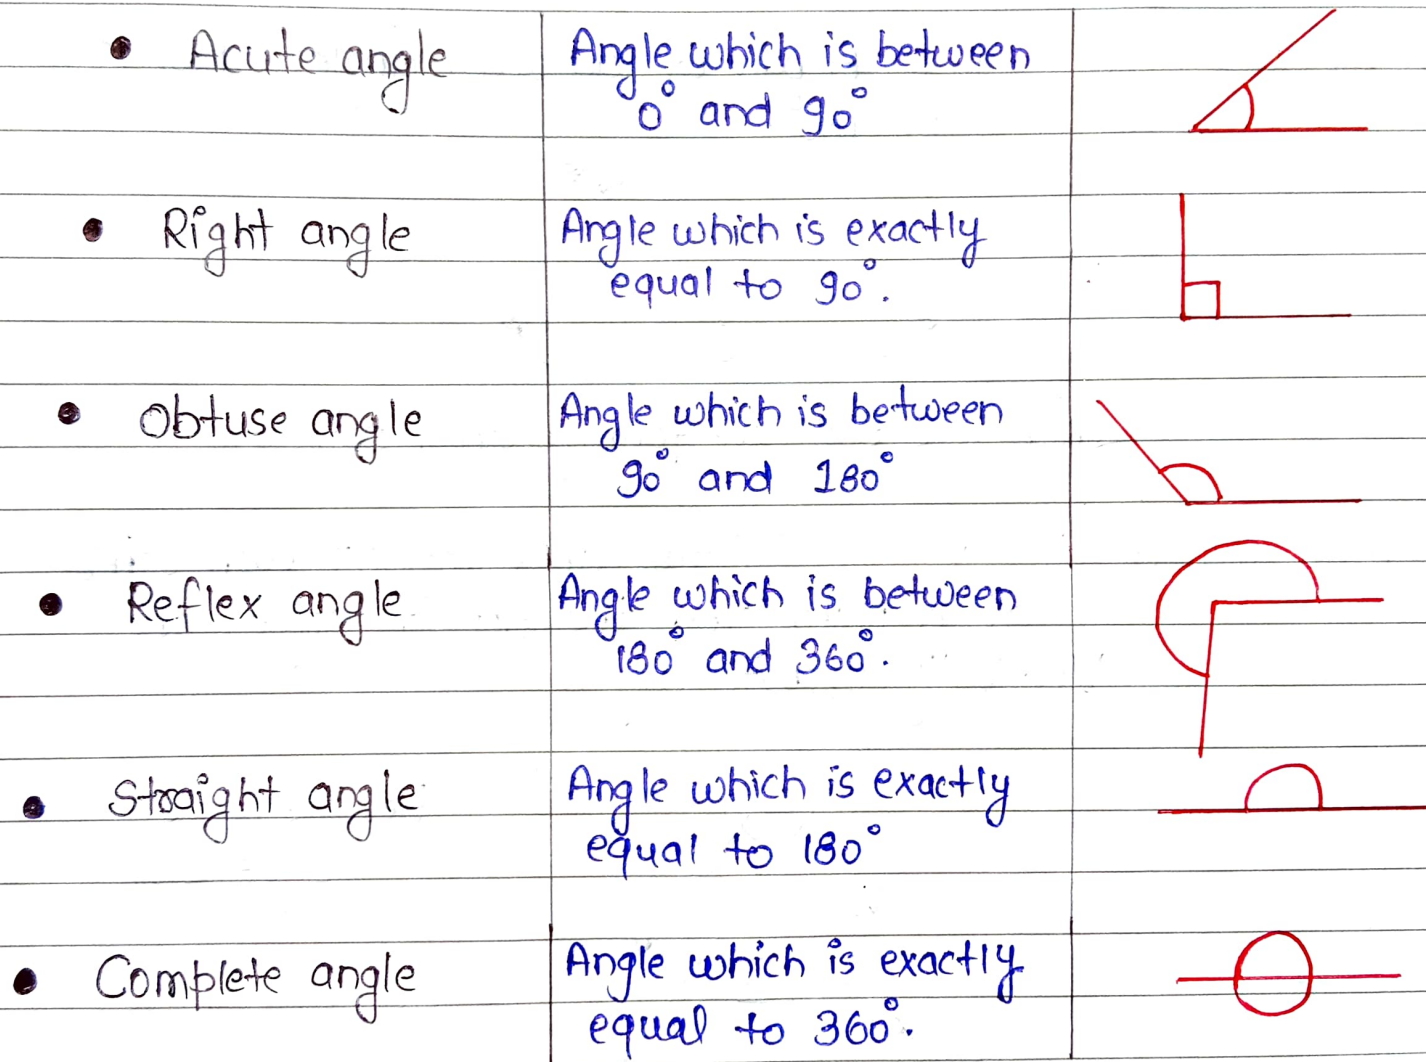 • Acute angle
Angle which is between
0° and 90°
• Right angle
Angle which is exactly
equal to 90°.
• Obtuse angle
Angle which is between
90° and 180°
• Reflex angle
Angle which is between
180° and 360°.
• Straight angle
Angle which is exactly
equal to 180°
• Complete angle
Angle which is exactly
equal to 360°.